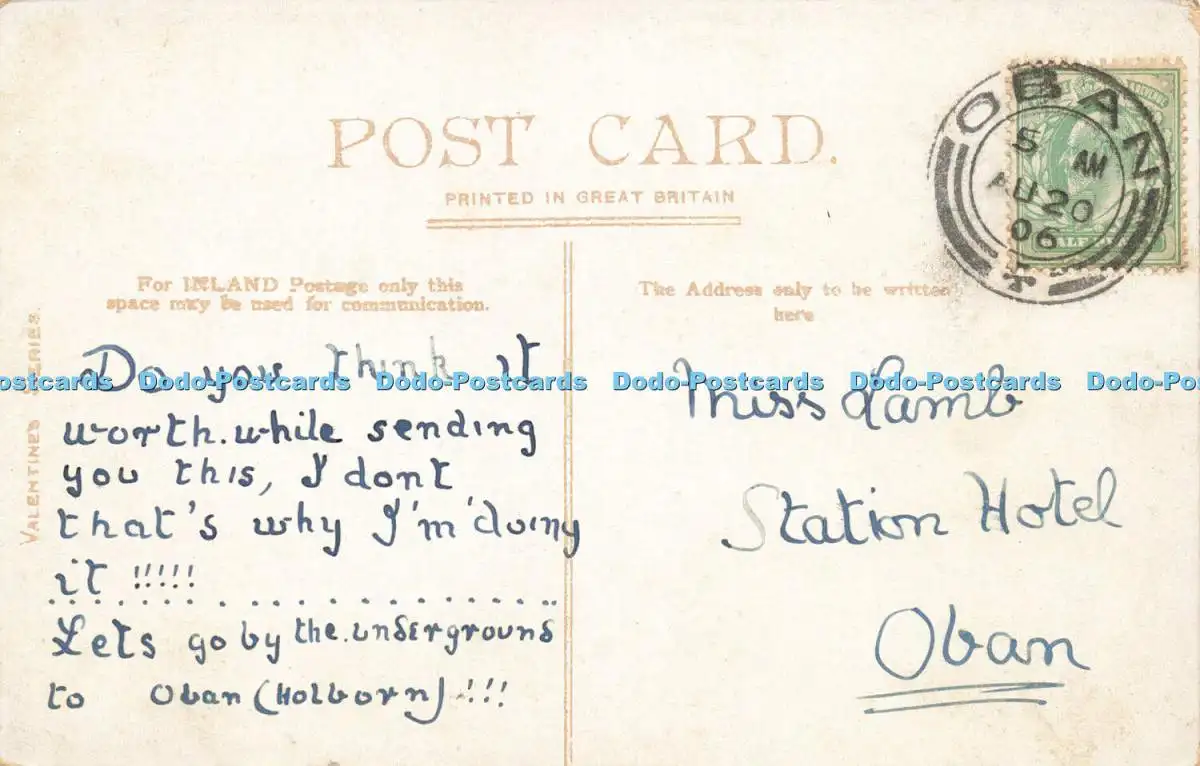 POST CARD.
PRINTED IN GREAT BRITAIN
For INLAND Postage only this
space may be used for communication.
The Address only to be written
here
VALENTINE'S SERIES.
OBAN
5 AM
AU 20
06
Do you think it
worth.while sending
you this, I dont
that's why I'm doing
it !!!!!
Lets go by the underground
to Oban (Holborn) !!!
Miss Lamb
Station Hotel
Oban
Dodo-Postcards Dodo-Postcards Dodo-Postcards Dodo-Postcards Dodo-Postcards